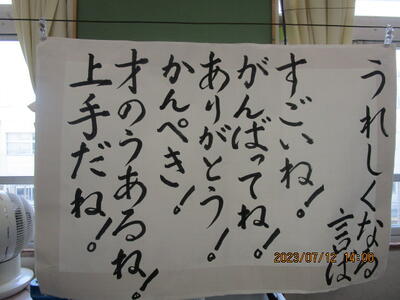 うれしくなる
言ば
すごいね!
がんばってね!
ありがとう!
かんぺき!
才のうあるね!
上手だね!
2023/07/12 14:06